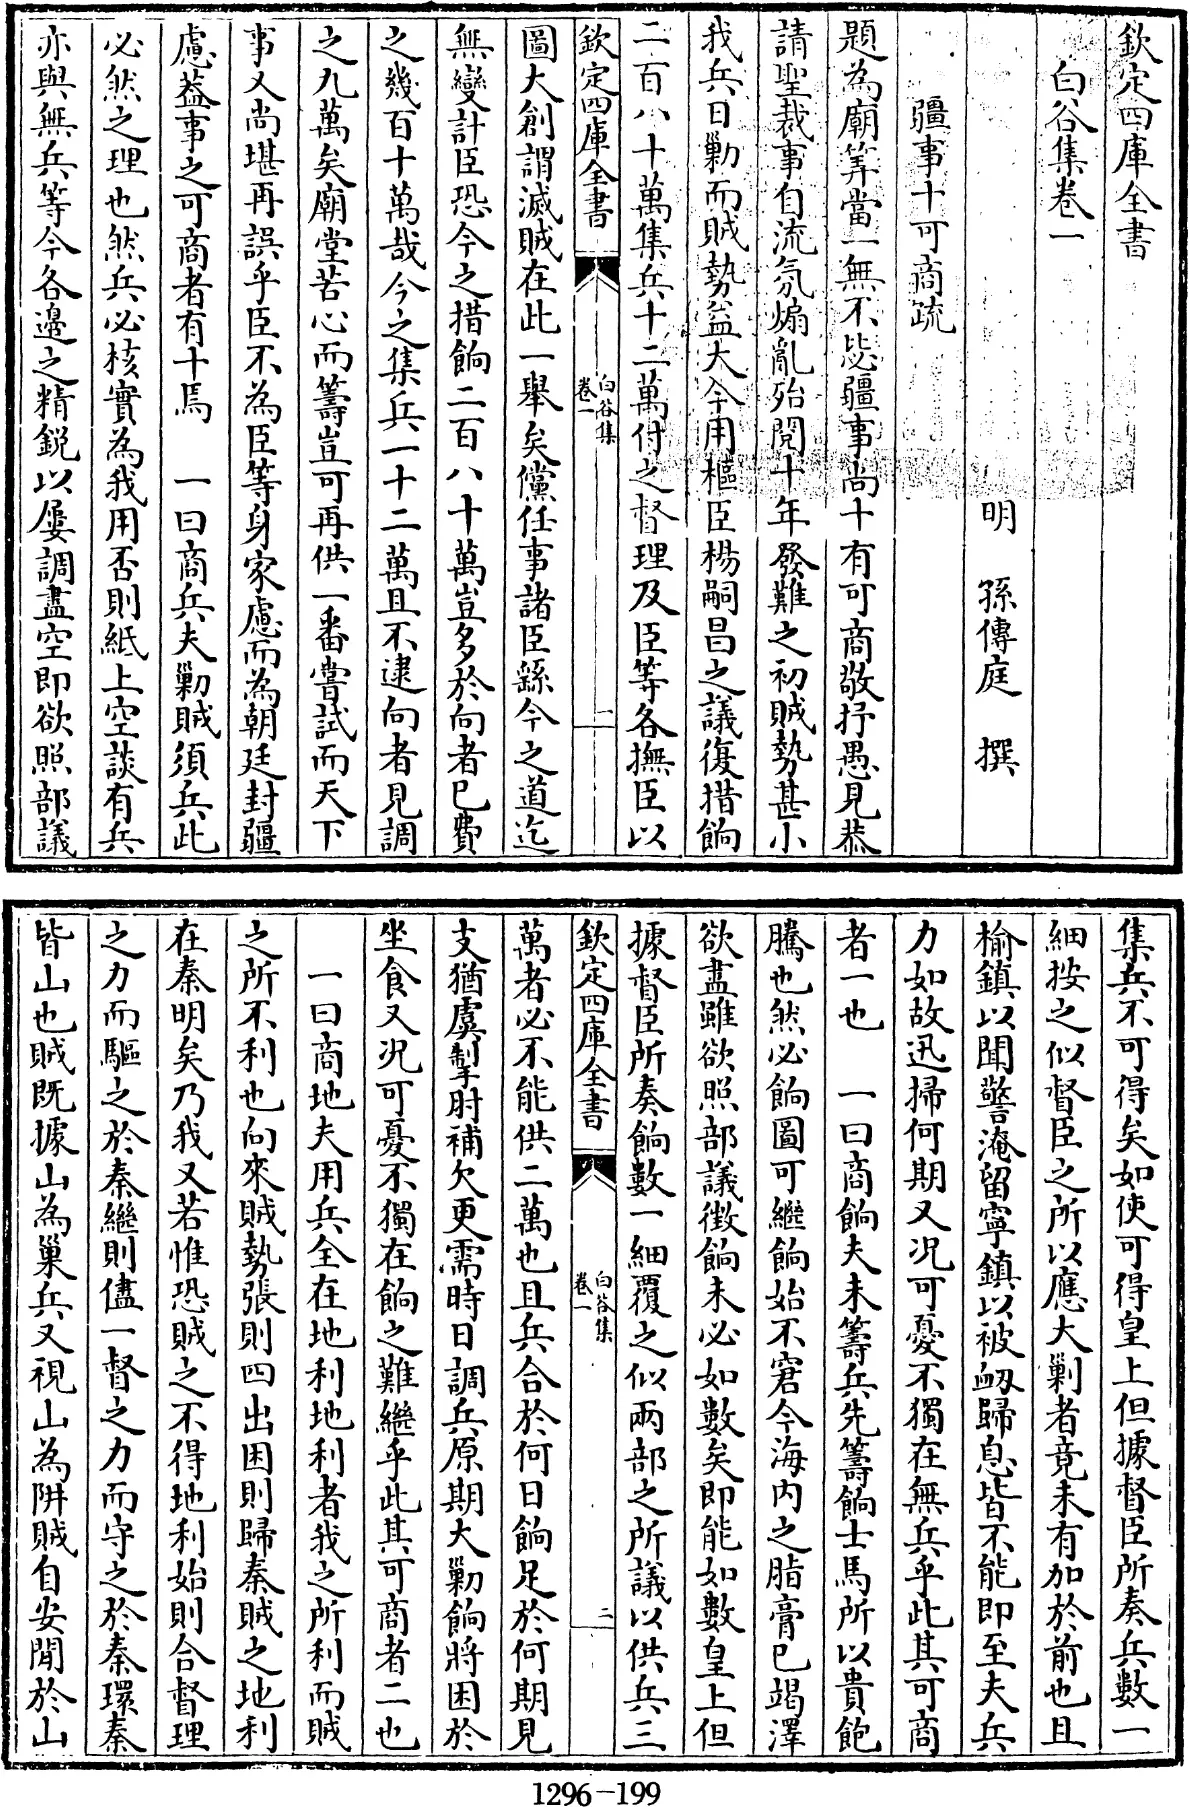 欽定四庫全書
白谷集卷一
明 孫傳庭 撰
疆事十可商疏
題為廟筭當一無不毖疆事尚十有可商敬抒愚見恭
請聖裁事自流氛煽亂殆閱十年發難之初賊勢甚小
我兵日勦而賊勢益大今用樞臣楊嗣昌之議復措餉
二百八十萬集兵十二萬付之督理及臣等各撫臣以
欽定四庫全書
白谷集
卷一
一
圖大創謂滅賊在此一舉矣儻任事諸臣繇今之道迄
無變計臣恐今之措餉二百八十萬豈多於向者已費
之幾百十萬哉今之集兵一十二萬且不逮向者見調
之九萬矣廟堂苦心而籌豈可再供一番嘗試而天下
事又尚堪再誤乎臣不為臣等身家慮而為朝廷封疆
慮葢事之可商者有十焉 一曰商兵夫勦賊須兵此
必然之理也然兵必核實為我用否則紙上空談有兵
亦與無兵等今各邊之精銳以屢調盡空即欲照部議
集兵不可得矣如使可得皇上但據督臣所奏兵數一
細按之似督臣之所以應大剿者竟未有加於前也且
榆鎮以聞警淹留寧鎮以被衂歸息皆不能即至夫兵
力如故迅掃何期又况可憂不獨在無兵乎此其可商
者一也 一曰商餉夫未籌兵先籌餉士馬所以貴飽
騰也然必餉圖可繼餉始不窘今海内之脂膏已竭澤
欲盡雖欲照部議徴餉未必如數矣即能如數皇上但
據督臣所奏餉數一細覆之似兩部之所議以供兵三
欽定四庫全書
白谷集
卷一
二
萬者必不能供二萬也且兵合於何日餉足於何期見
支猶虞掣肘補欠更需時日調兵原期大勦餉將困於
坐食又况可憂不獨在餉之難繼乎此其可商者二也
一曰商地夫用兵全在地利地利者我之所利而賊
之所不利也向來賊勢張則四出困則歸秦賊之地利
在秦明矣乃我又若惟恐賊之不得地利始則合督理
之力而驅之於秦繼則儘一督之力而守之於秦環秦
皆山也賊既據山為巢兵又視山為阱賊自安閒於山
1296-199